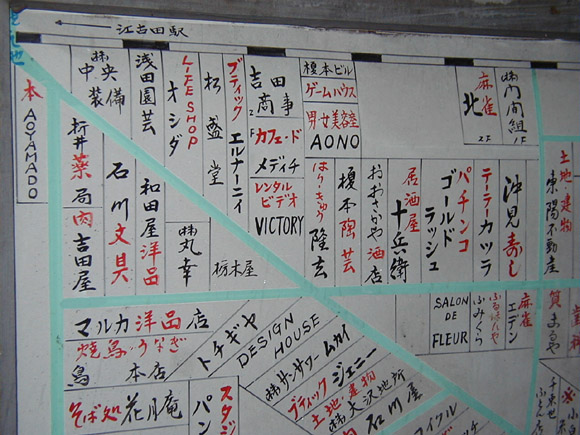 江古田駅
本 AOYAMADO
㈱中央装備
浅田園芸
LIFE SHOP オシダ
松盛堂
ブティック エルナーニイ
吉田商事 2F
カフェ・ド メディチ
レンタルビデオ VICTORY
榎本ビル
ゲームハウス
男・女美容室 AONO
麻雀 北 2F
㈱門間組 1F
折井薬局
肉 吉田屋
石川文具
和田屋洋品
㈱丸幸
栃木屋
はり・きゅう 隆玄
榎本陶芸
おおさかや酒店
居酒屋 十兵衛
パチンコ ゴールドラッシュ
テーラーカツラ
汐見寿し
土地・建物 東陽不動産
マルカ洋品店
トチギヤ
DESIGN HOUSE
㈱サンサワームカイ
ブティック ジェニー
土地・建物 ㈱大沢地所
石川屋
SALON DE FLEUR
ふるほんや ふみくら
麻雀 エデン
質 まるや
焼鳥・うなぎ 鳥 本店
そば処 花月庵
スタジ
パン